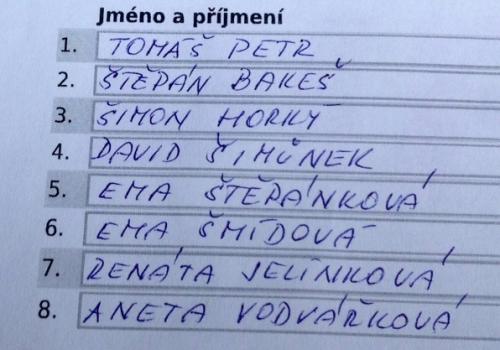 Jméno a příjmení
1. TOMÁŠ PETR
2. ŠTĚPÁN BAKEŠ
3. ŠIMON HORKÝ
4. DAVID ŠIMŮNEK
5. EMA ŠTĚPÁNKOVÁ
6. EMA ŠMÍDOVÁ
7. RENÁTA JELÍNKOVÁ
8. ANETA VODVÁŘKOVÁ